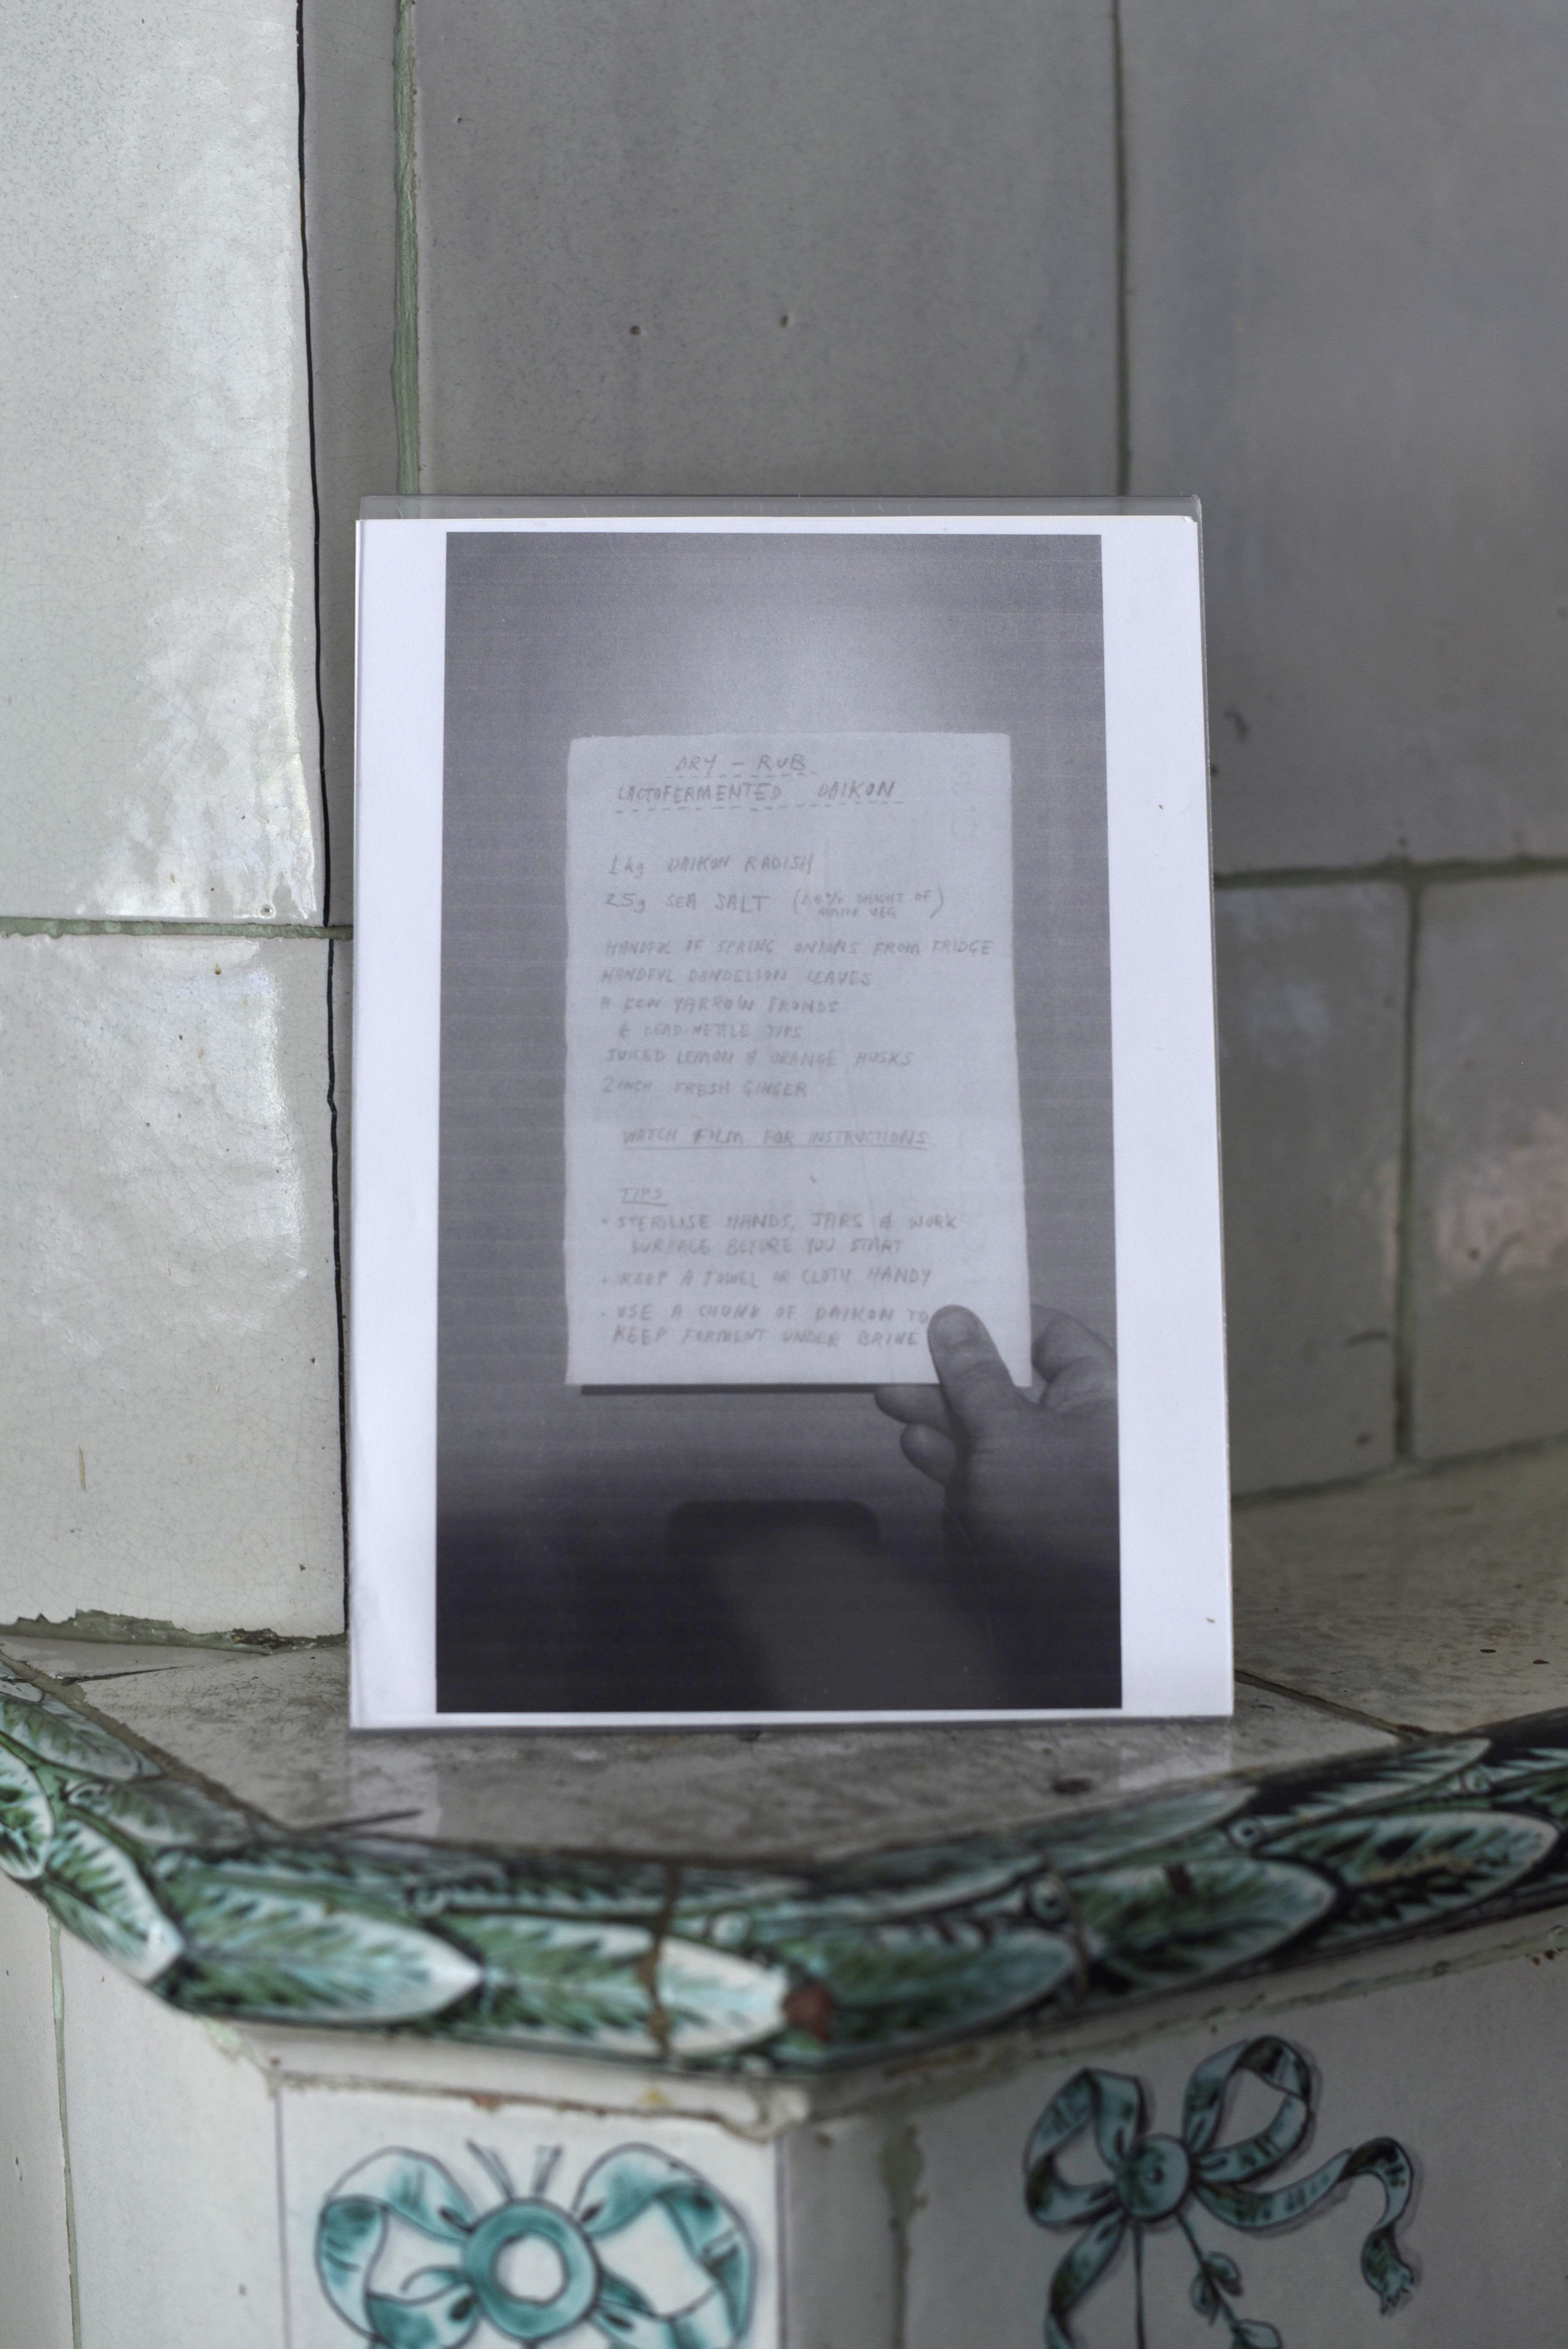 DRY - RUB
LACTOFERMENTED DAIKON
1 kg DAIKON RADISH
25g SEA SALT ( WEIGHT OF
MAIN VEG )
HANDFUL OF SPRING ONIONS FROM FRIDGE
HANDFUL DANDELION LEAVES
A FEW YARROW FRONDS
& DEAD NETTLE TIPS
JUICED LEMON & ORANGE HUSKS
2 INCH FRESH GINGER
WATCH FILM FOR INSTRUCTIONS
TIPS
• STERILISE HANDS, JARS & WORK
SURFACE BEFORE YOU START
• KEEP A TOWEL OR CLOTH HANDY
• USE A CHUNK OF DAIKON TO
KEEP FERMENT UNDER BRINE